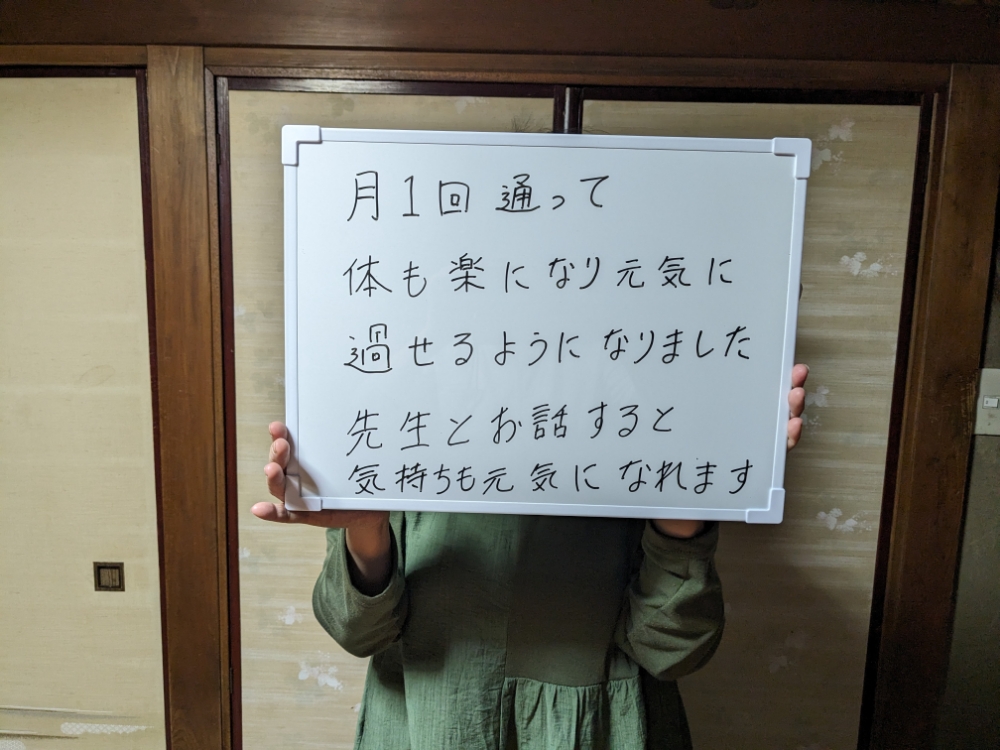 月1回 通って
体も楽になり元気に
過せるようになりました
先生とお話すると
気持ちも元気になれます